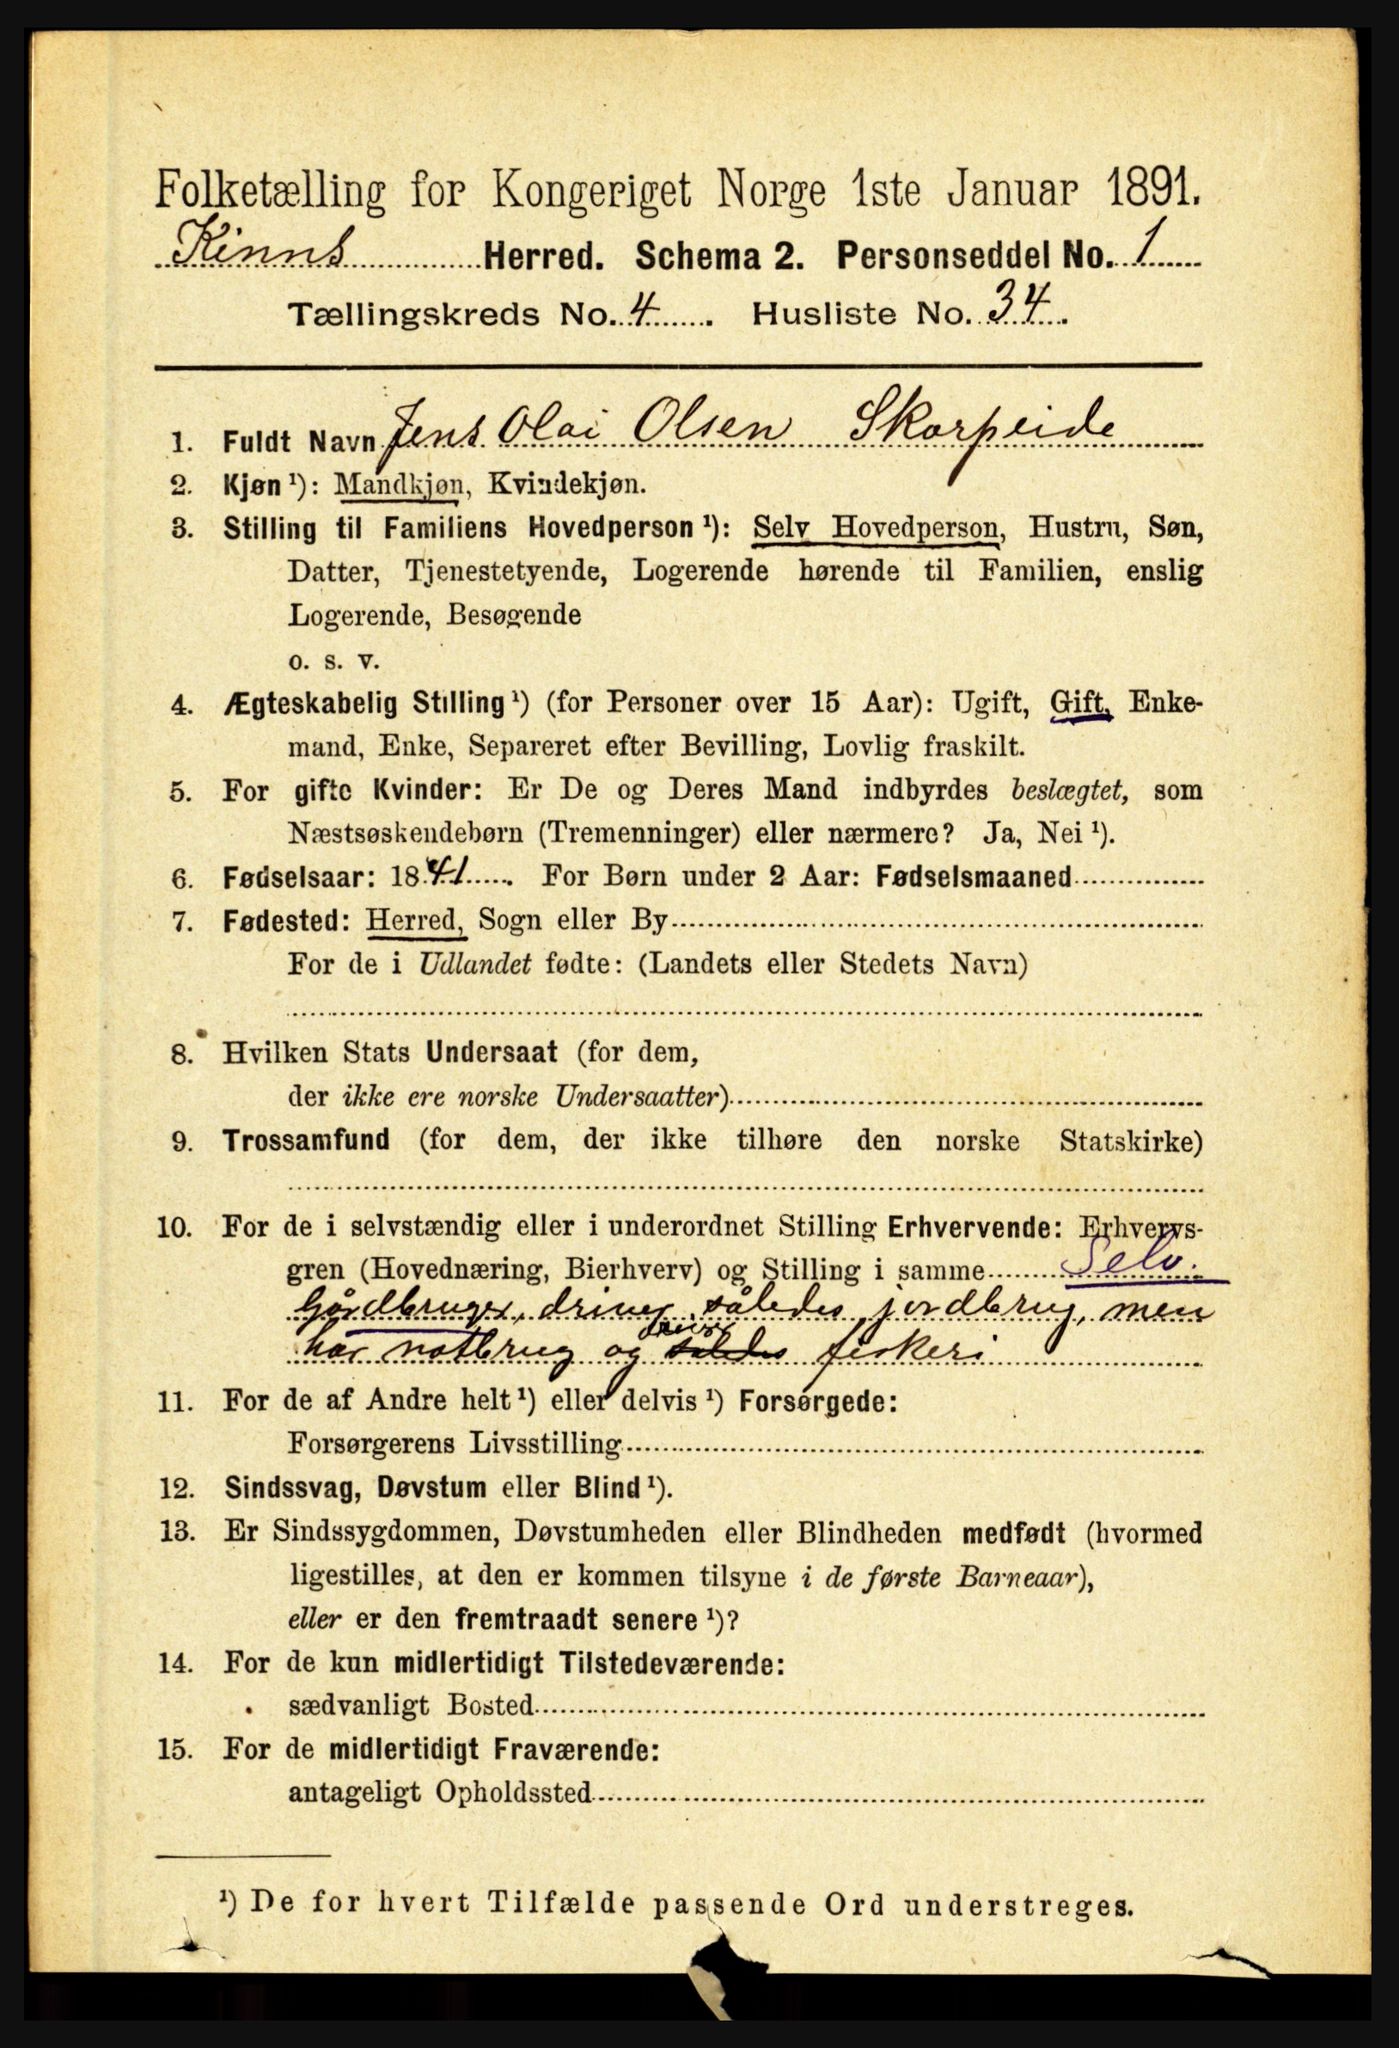 Folketælling for Kongeriget Norge 1ste Januar 1891.
Kinns Herred. Schema 2. Personseddel No. 1
Tællingskreds No. 4. Husliste No. 34.
1. Fuldt Navn Jens Olai Olsen Skorpeide
2. Kjøn ¹): Mandkjøn, Kvindekjøn.
3. Stilling til Familiens Hovedperson ¹): Selv Hovedperson, Hustru, Søn,
Datter, Tjenestetyende, Logerende hørende til Familien, enslig
Logerende, Besøgende
o. s. v.
4. Ægteskabelig Stilling ¹) (for Personer over 15 Aar): Ugift, Gift, Enke-
mand, Enke, Separeret efter Bevilling, Lovlig fraskilt.
5. For gifte Kvinder: Er De og Deres Mand indbyrdes beslægtet, som
Næstsøskendebørn (Tremenninger) eller nærmere? Ja, Nei ¹).
6. Fødselsaar: 1841. For Børn under 2 Aar: Fødselsmaaned
7. Fødested: Herred, Sogn eller By
For de i Udlandet fødte: (Landets eller Stedets Navn)
8. Hvilken Stats Undersaat (for dem,
der ikke ere norske Undersaatter)
9. Trossamfund (for dem, der ikke tilhøre den norske Statskirke)
10. For de i selvstændig eller i underordnet Stilling Erhvervende: Erhvervs-
gren (Hovednæring, Bierhverv) og Stilling i samme Selv.
Gårdbruger, driver således jordbrug, men
har notbrug og driver fiskeri
11. For de af Andre helt ¹) eller delvis ¹) Forsørgede:
Forsørgerens Livsstilling
12. Sindssvag, Døvstum eller Blind ¹).
13. Er Sindssygdommen, Døvstumheden eller Blindheden medfødt (hvormed
ligestilles, at den er kommen tilsyne i de første Barneaar),
eller er den fremtraadt senere ¹)?
14. For de kun midlertidigt Tilstedeværende:
sædvanligt Bosted
15. For de midlertidigt Fraværende:
antageligt Opholdssted
¹) De for hvert Tilfælde passende Ord understreges.